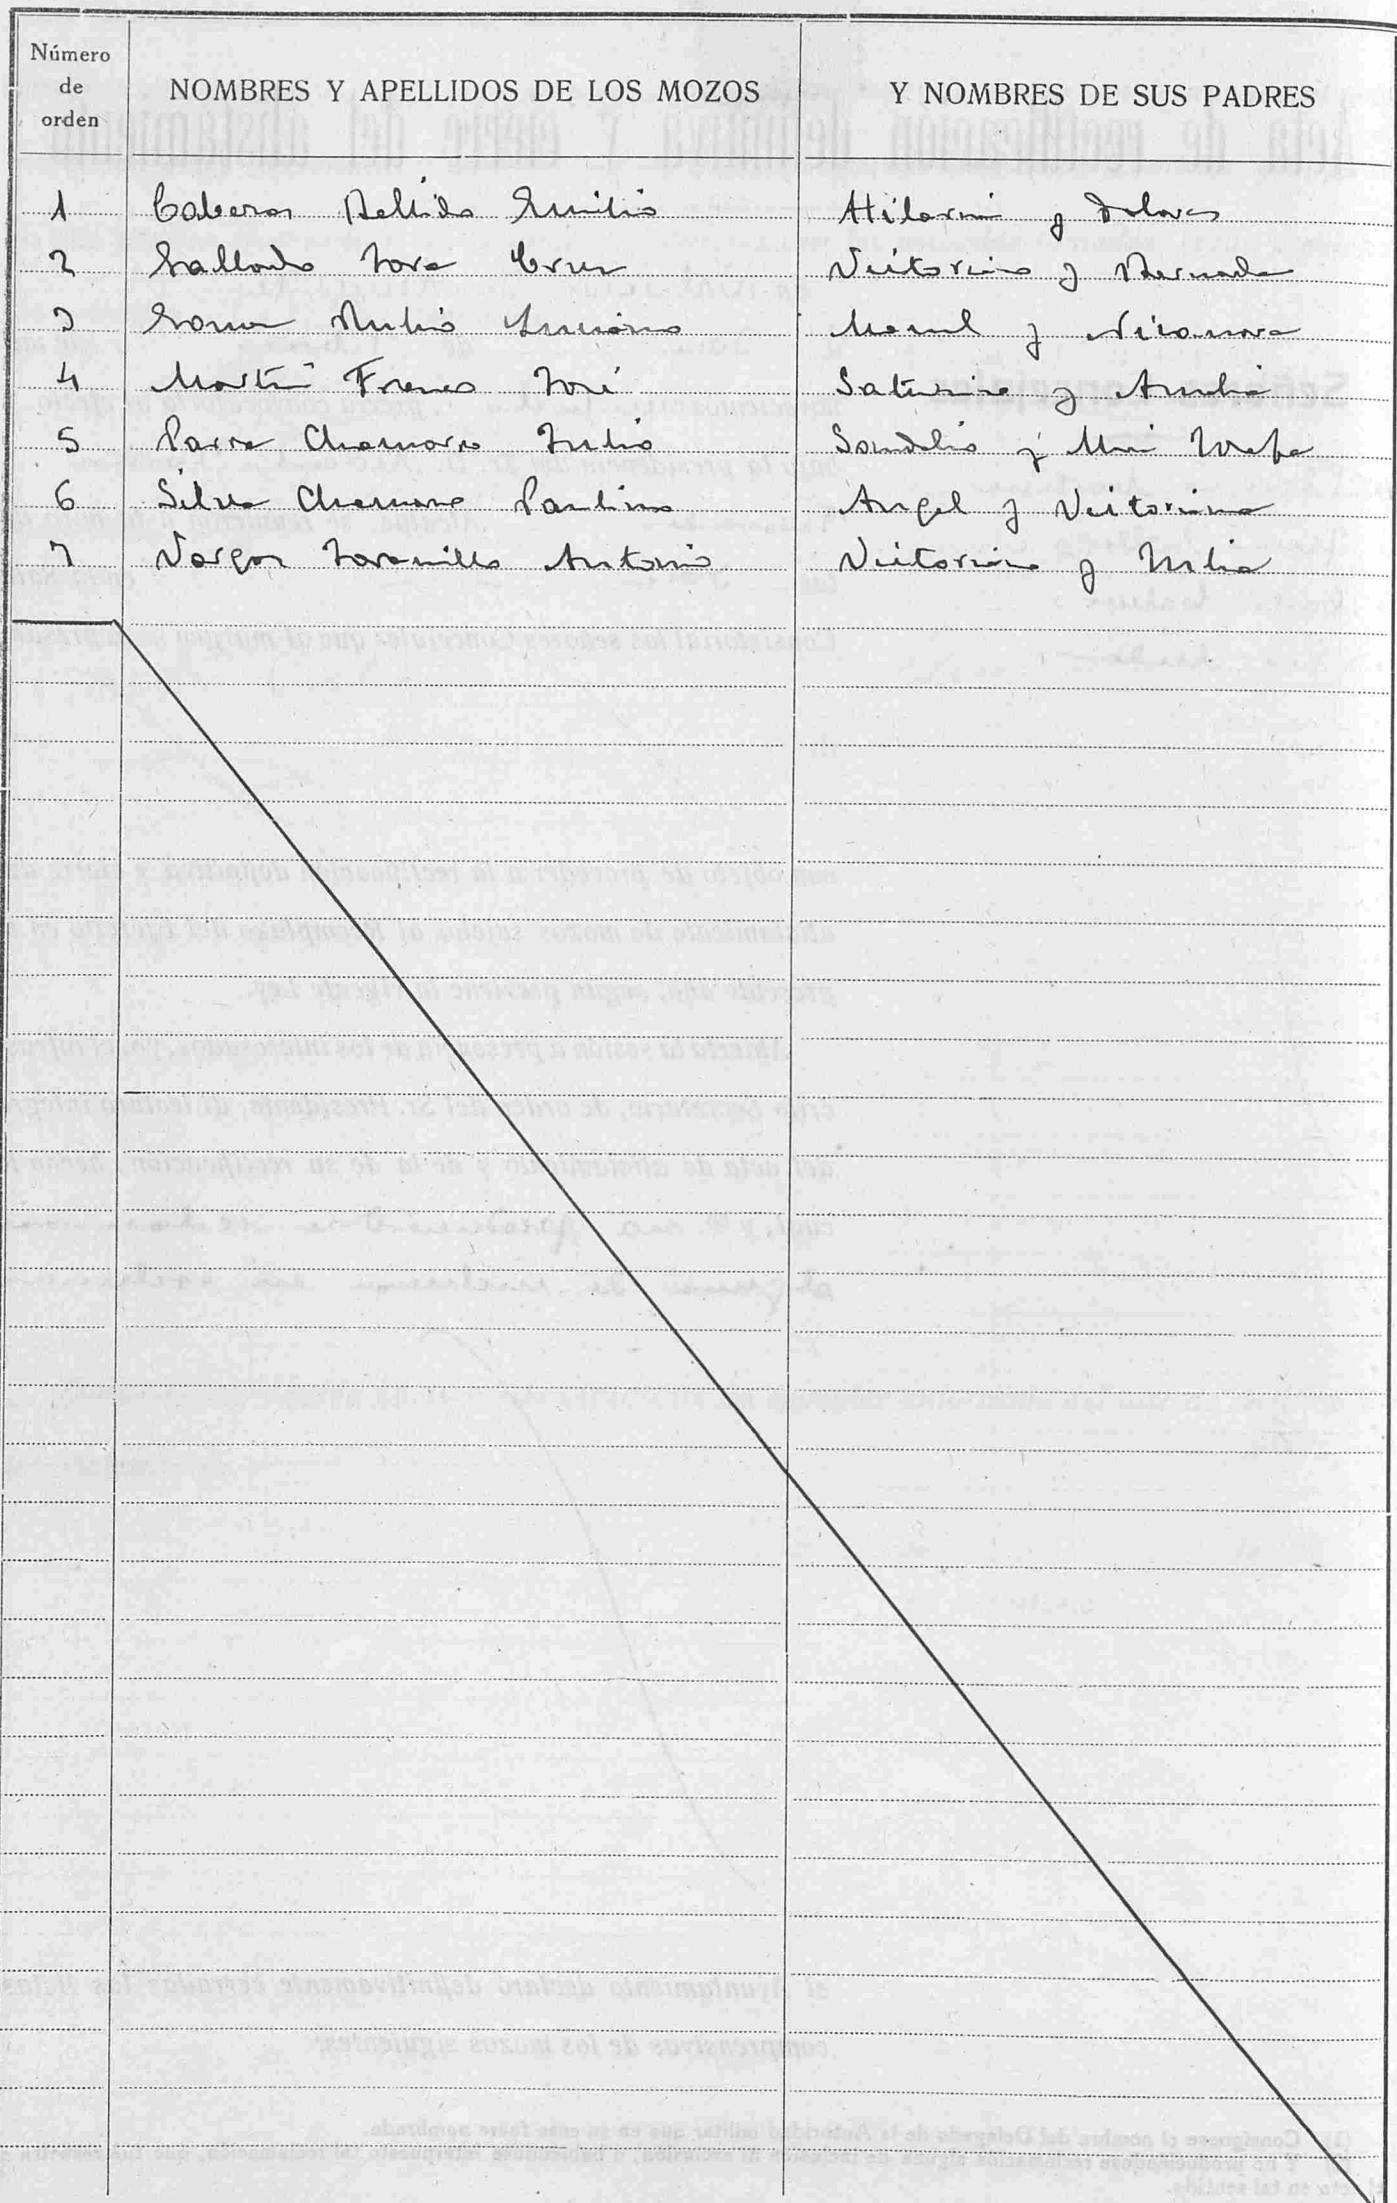 Número de orden NOMBRES Y APELLIDOS DE LOS MOZOS Y NOMBRES DE SUS PADRES
1 Caberos Bellido Emilio Hilario y Dolores
2 Gallardo Jara Cruz Victorino y Bernarda
3 Rubio Luciano Manuel y Nicanora
4 Martín Franco José Saturnino y Amelia
5 Parra Chamorro Julio Sandalio y Mª Josefa
6 Silva Chamorro Paulino Angel y Victorina
7 Vargas Jaramillo Antonio Victoriano y Julia